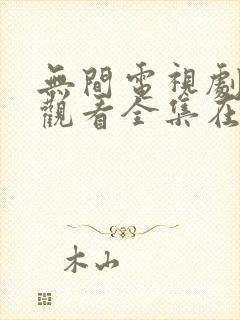 無間電視劇
觀看全集在
木山